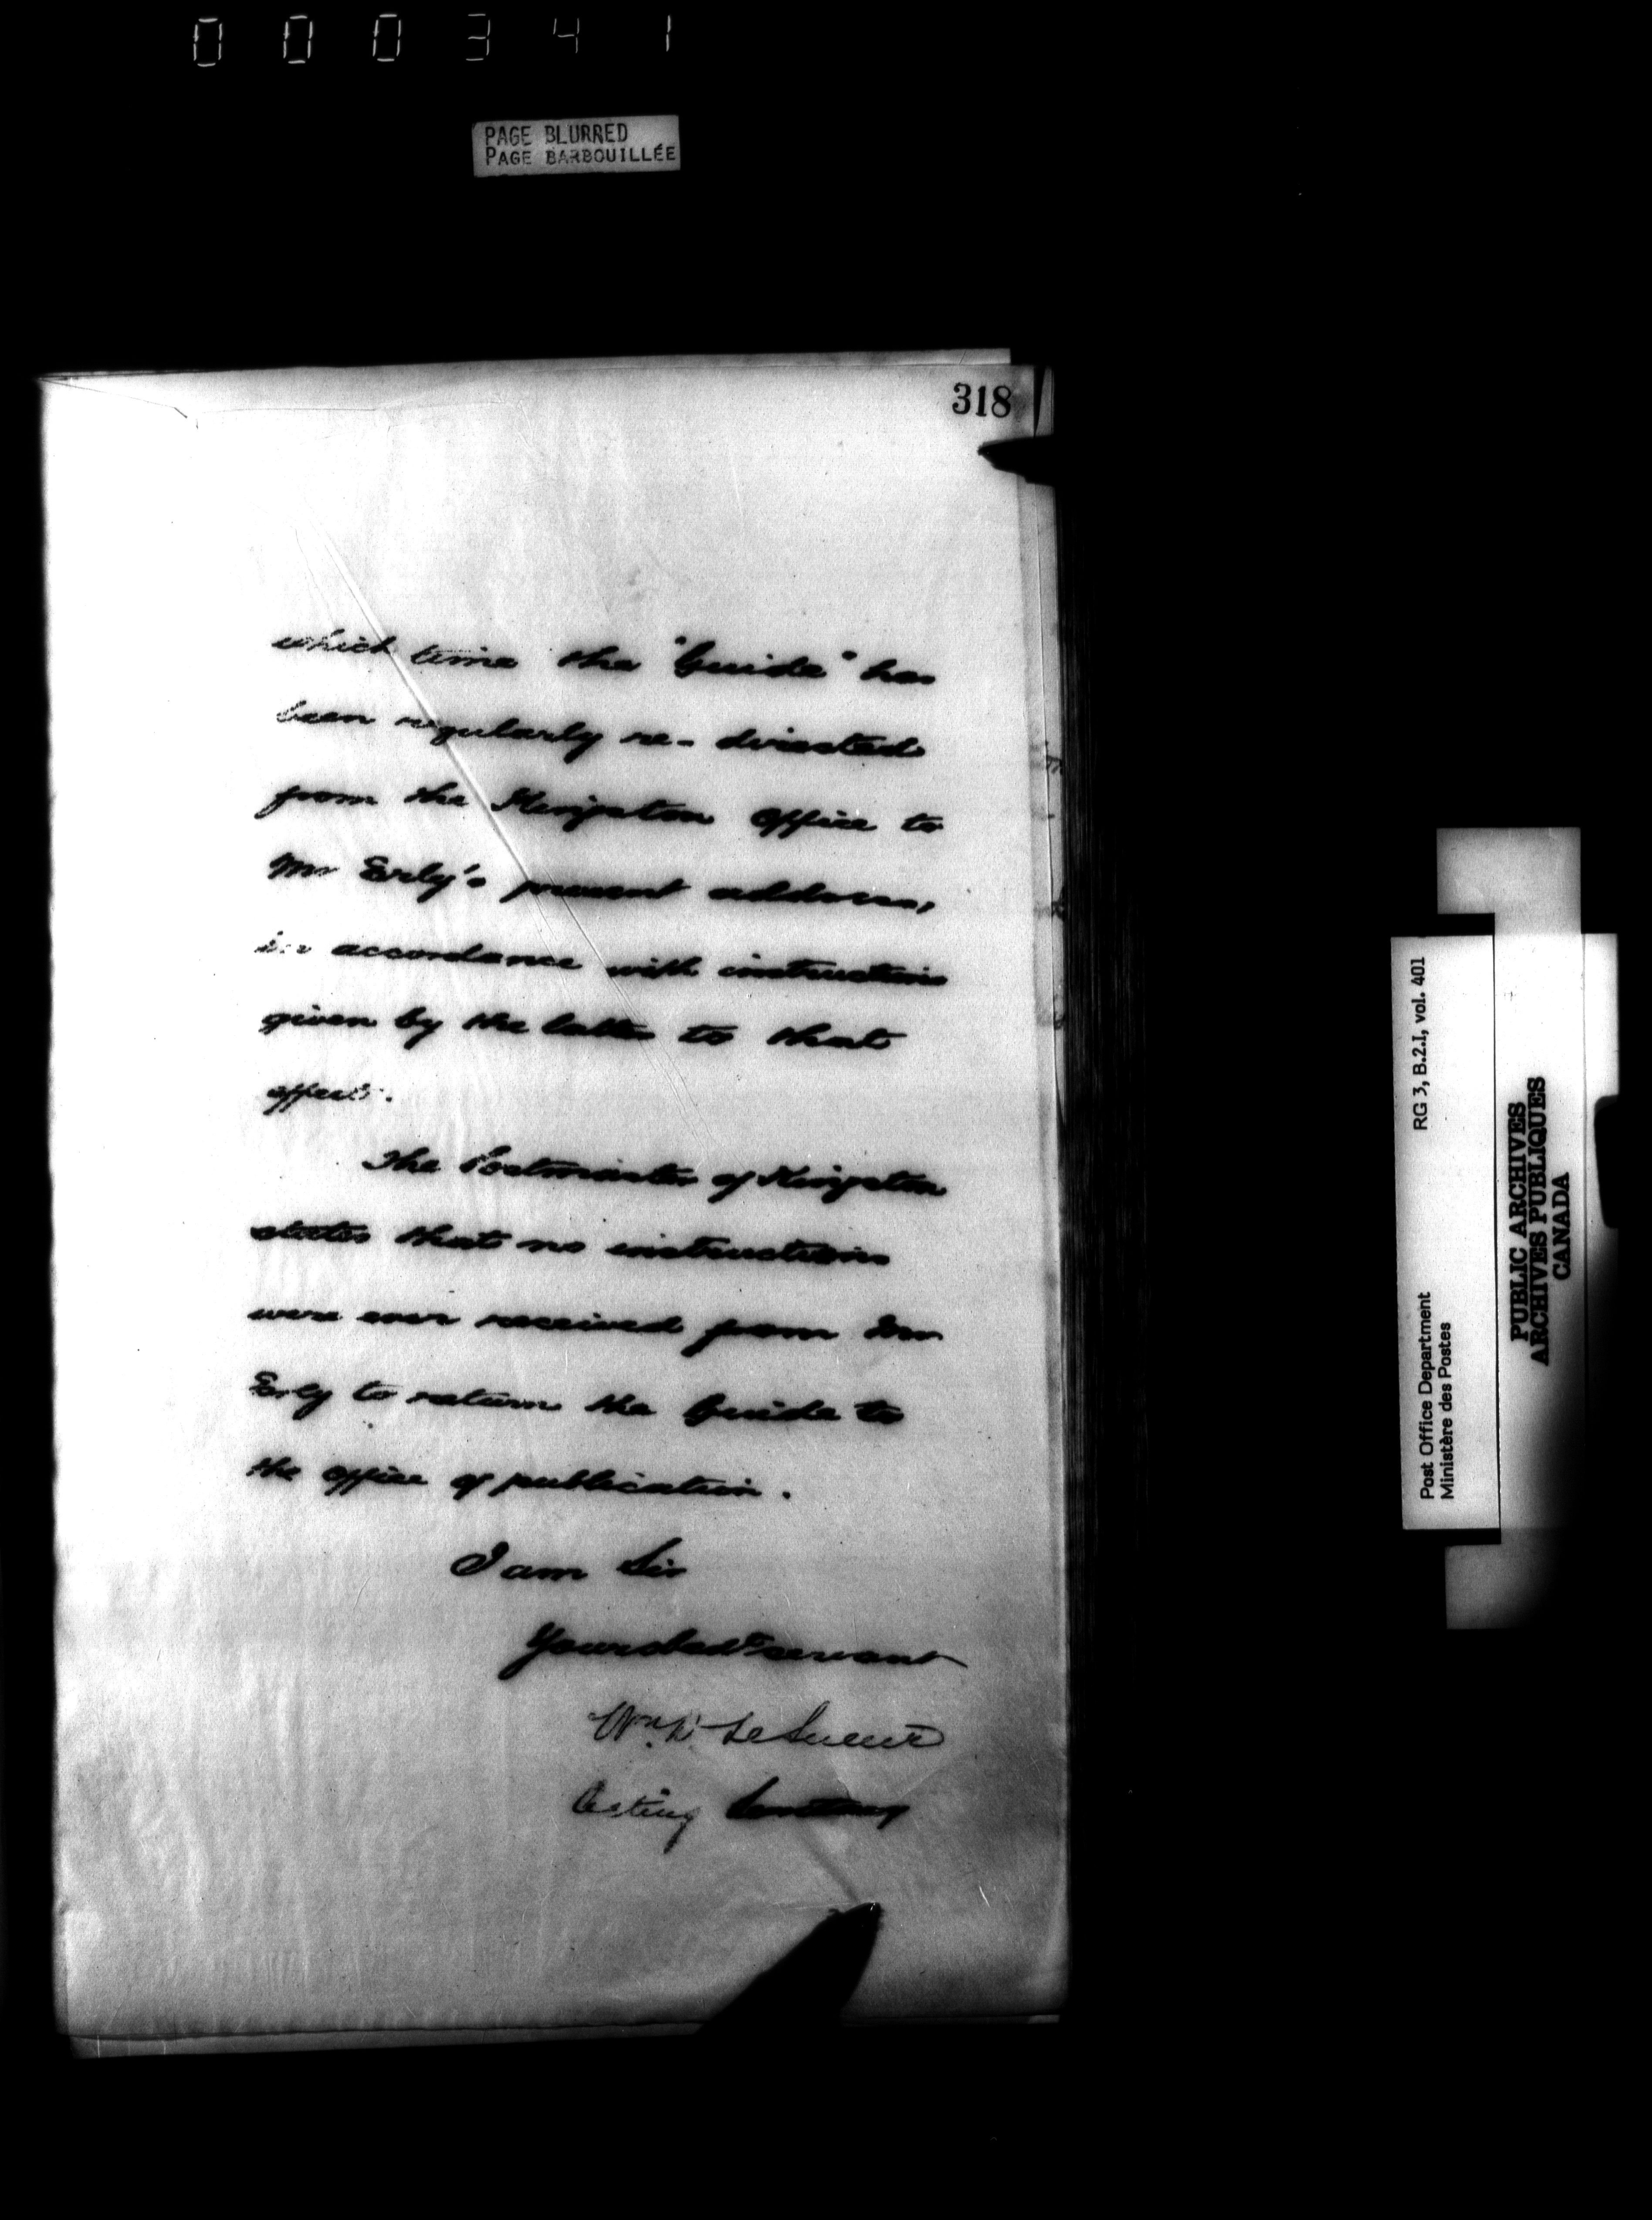 000341
PAGE BLURRED
PAGE BARBOUILLÉE
318
which time the "Guide" has
been regularly re-directed
from the Kingston Office to
Mr Erly's present address,
in accordance with instructions
given by the latter to that
effect.
The Postmaster of Kingston
states that no instructions
were ever received from Mr
Erly to return the Guide to
the office of publication.
I am Sir
Your obedt servant
Wm. D. LeSueur
Acting Secretary
RG 3, B.2.I, vol. 401
Post Office Department
Ministère des Postes
PUBLIC ARCHIVES
ARCHIVES PUBLIQUES
CANADA